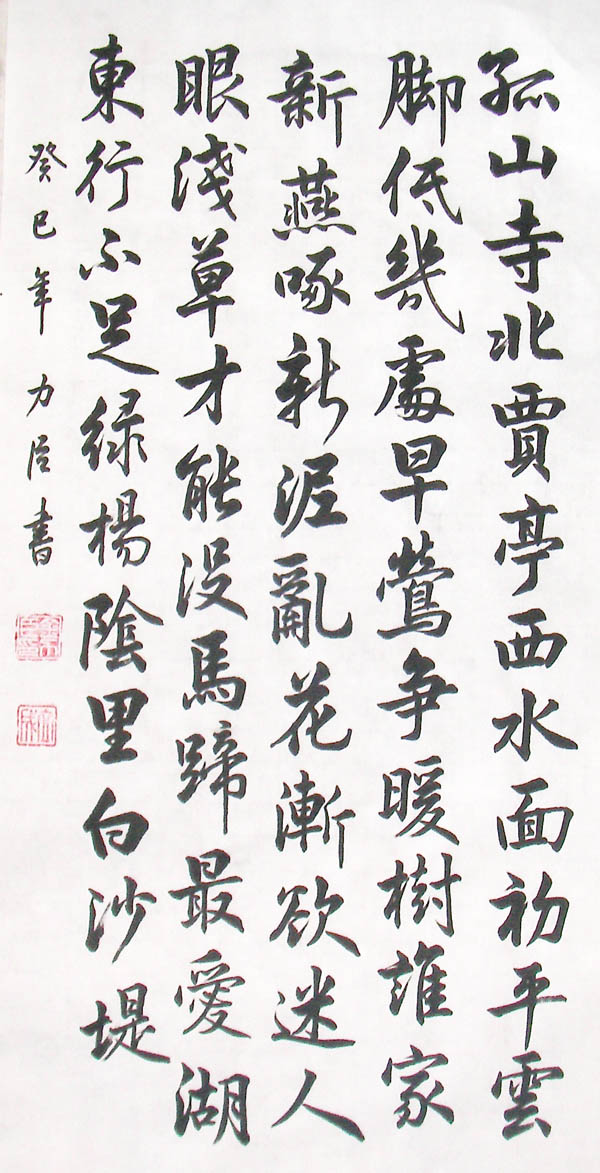 孤山寺北賈亭西水面初平雲
脚低幾處早鶯争暖樹誰家
新燕啄新泥亂花漸欲迷人
眼淺草才能没馬蹄最愛湖
東行不足緑楊陰里白沙堤
癸巳年 力臣書